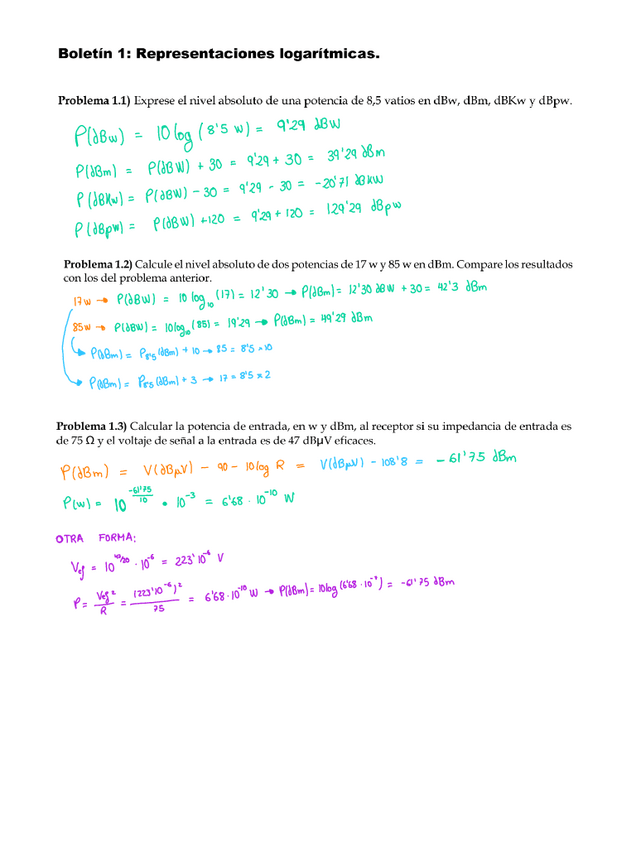 Boletín 1: Representaciones logarítmicas.
Problema 1.1) Exprese el nivel absoluto de una potencia de 8,5 vatios en dBw, dBm, dBKw y dBpw.
P(dBw) = 10 log (8'5 w) = 9'29 dBW
P(dBm) = P(dBW) + 30 = 9'29 + 30 = 39'29 dBm
P(dBKw) = P(dBW) - 30 = 9'29 - 30 = -20'71 dBKW
P(dBpW) = P(dBW) +120 = 9'29 + 120 = 129'29 dBpW
Problema 1.2) Calcule el nivel absoluto de dos potencias de 17 w y 85 w en dBm. Compare los resultados
con los del problema anterior.
17w → P(dBW) = 10 log₁₀ (17) = 12'30 → P(dBm) = 12'30 dBW + 30 = 42'3 dBm
85w → P(dBW) = 10log₁₀ (85) = 19'29 → P(dBm) = 49'29 dBm
P(dBm) = P8'5 (dBm) + 10 → 85 = 8'5 × 10
P(dBm) = P8'5 (dBm) + 3 → 17 = 8'5 × 2
Problema 1.3) Calcular la potencia de entrada, en w y dBm, al receptor si su impedancia de entrada es
de 75 Ω y el voltaje de señal a la entrada es de 47 dBµV eficaces.
P(dBm) = V(dBµV) - 90 - 10log R = V(dBµV) - 108'8 = -61'75 dBm
P(w) = 10^(-61'75/10) • 10⁻³ = 6'68 · 10⁻¹⁰ W
OTRA FORMA:
Vef = 10^(/20) · 10⁻⁶ = 223'10⁻⁶ V
P = Vef²/R = (223'10⁻⁶)²/75 = 6'68·10⁻¹⁰ W → P(dBm) = 10log (6'68·10⁻⁷) = -61'75 dBm